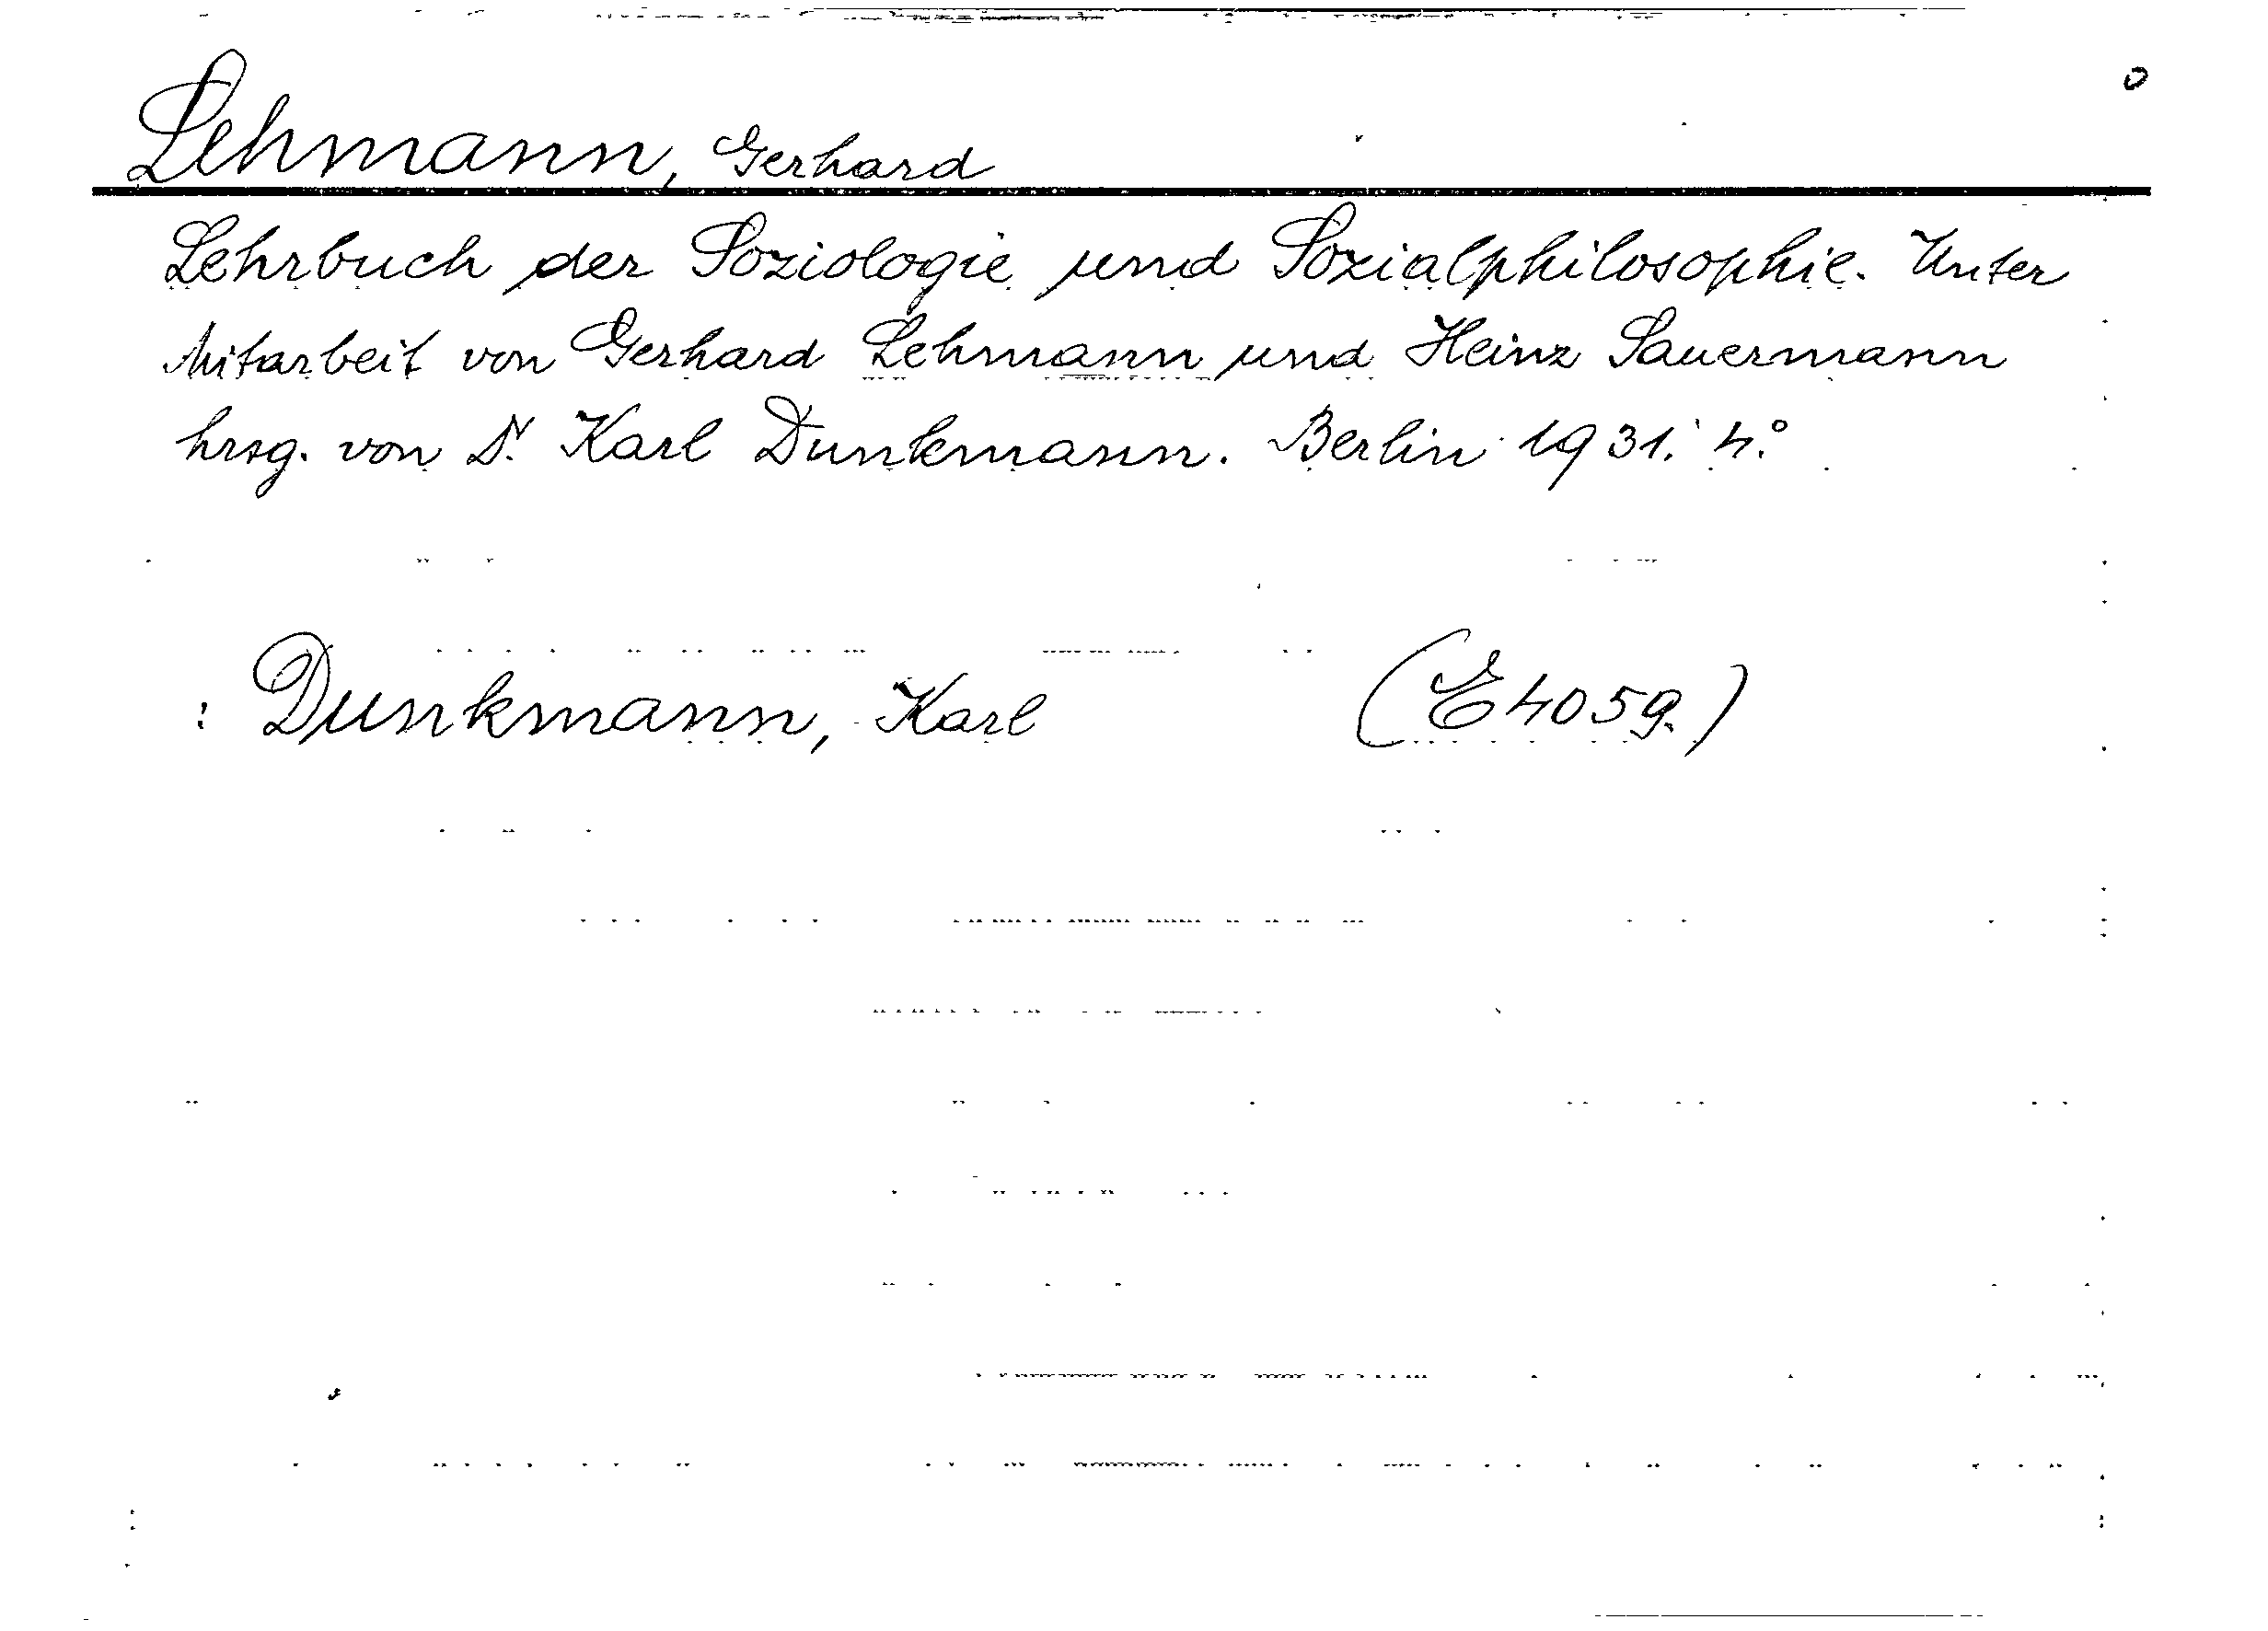 Lehmann, Gerhard
Lehrbuch der Soziologie und Sozialphilosophie. Unter
Mitarbeit von Gerhard Lehmann und Heinz Sauermann
hrsg. von Dr. Karl Dunkmann. Berlin 1931. 4.°
: Dunkmann, Karl (E 4059.)